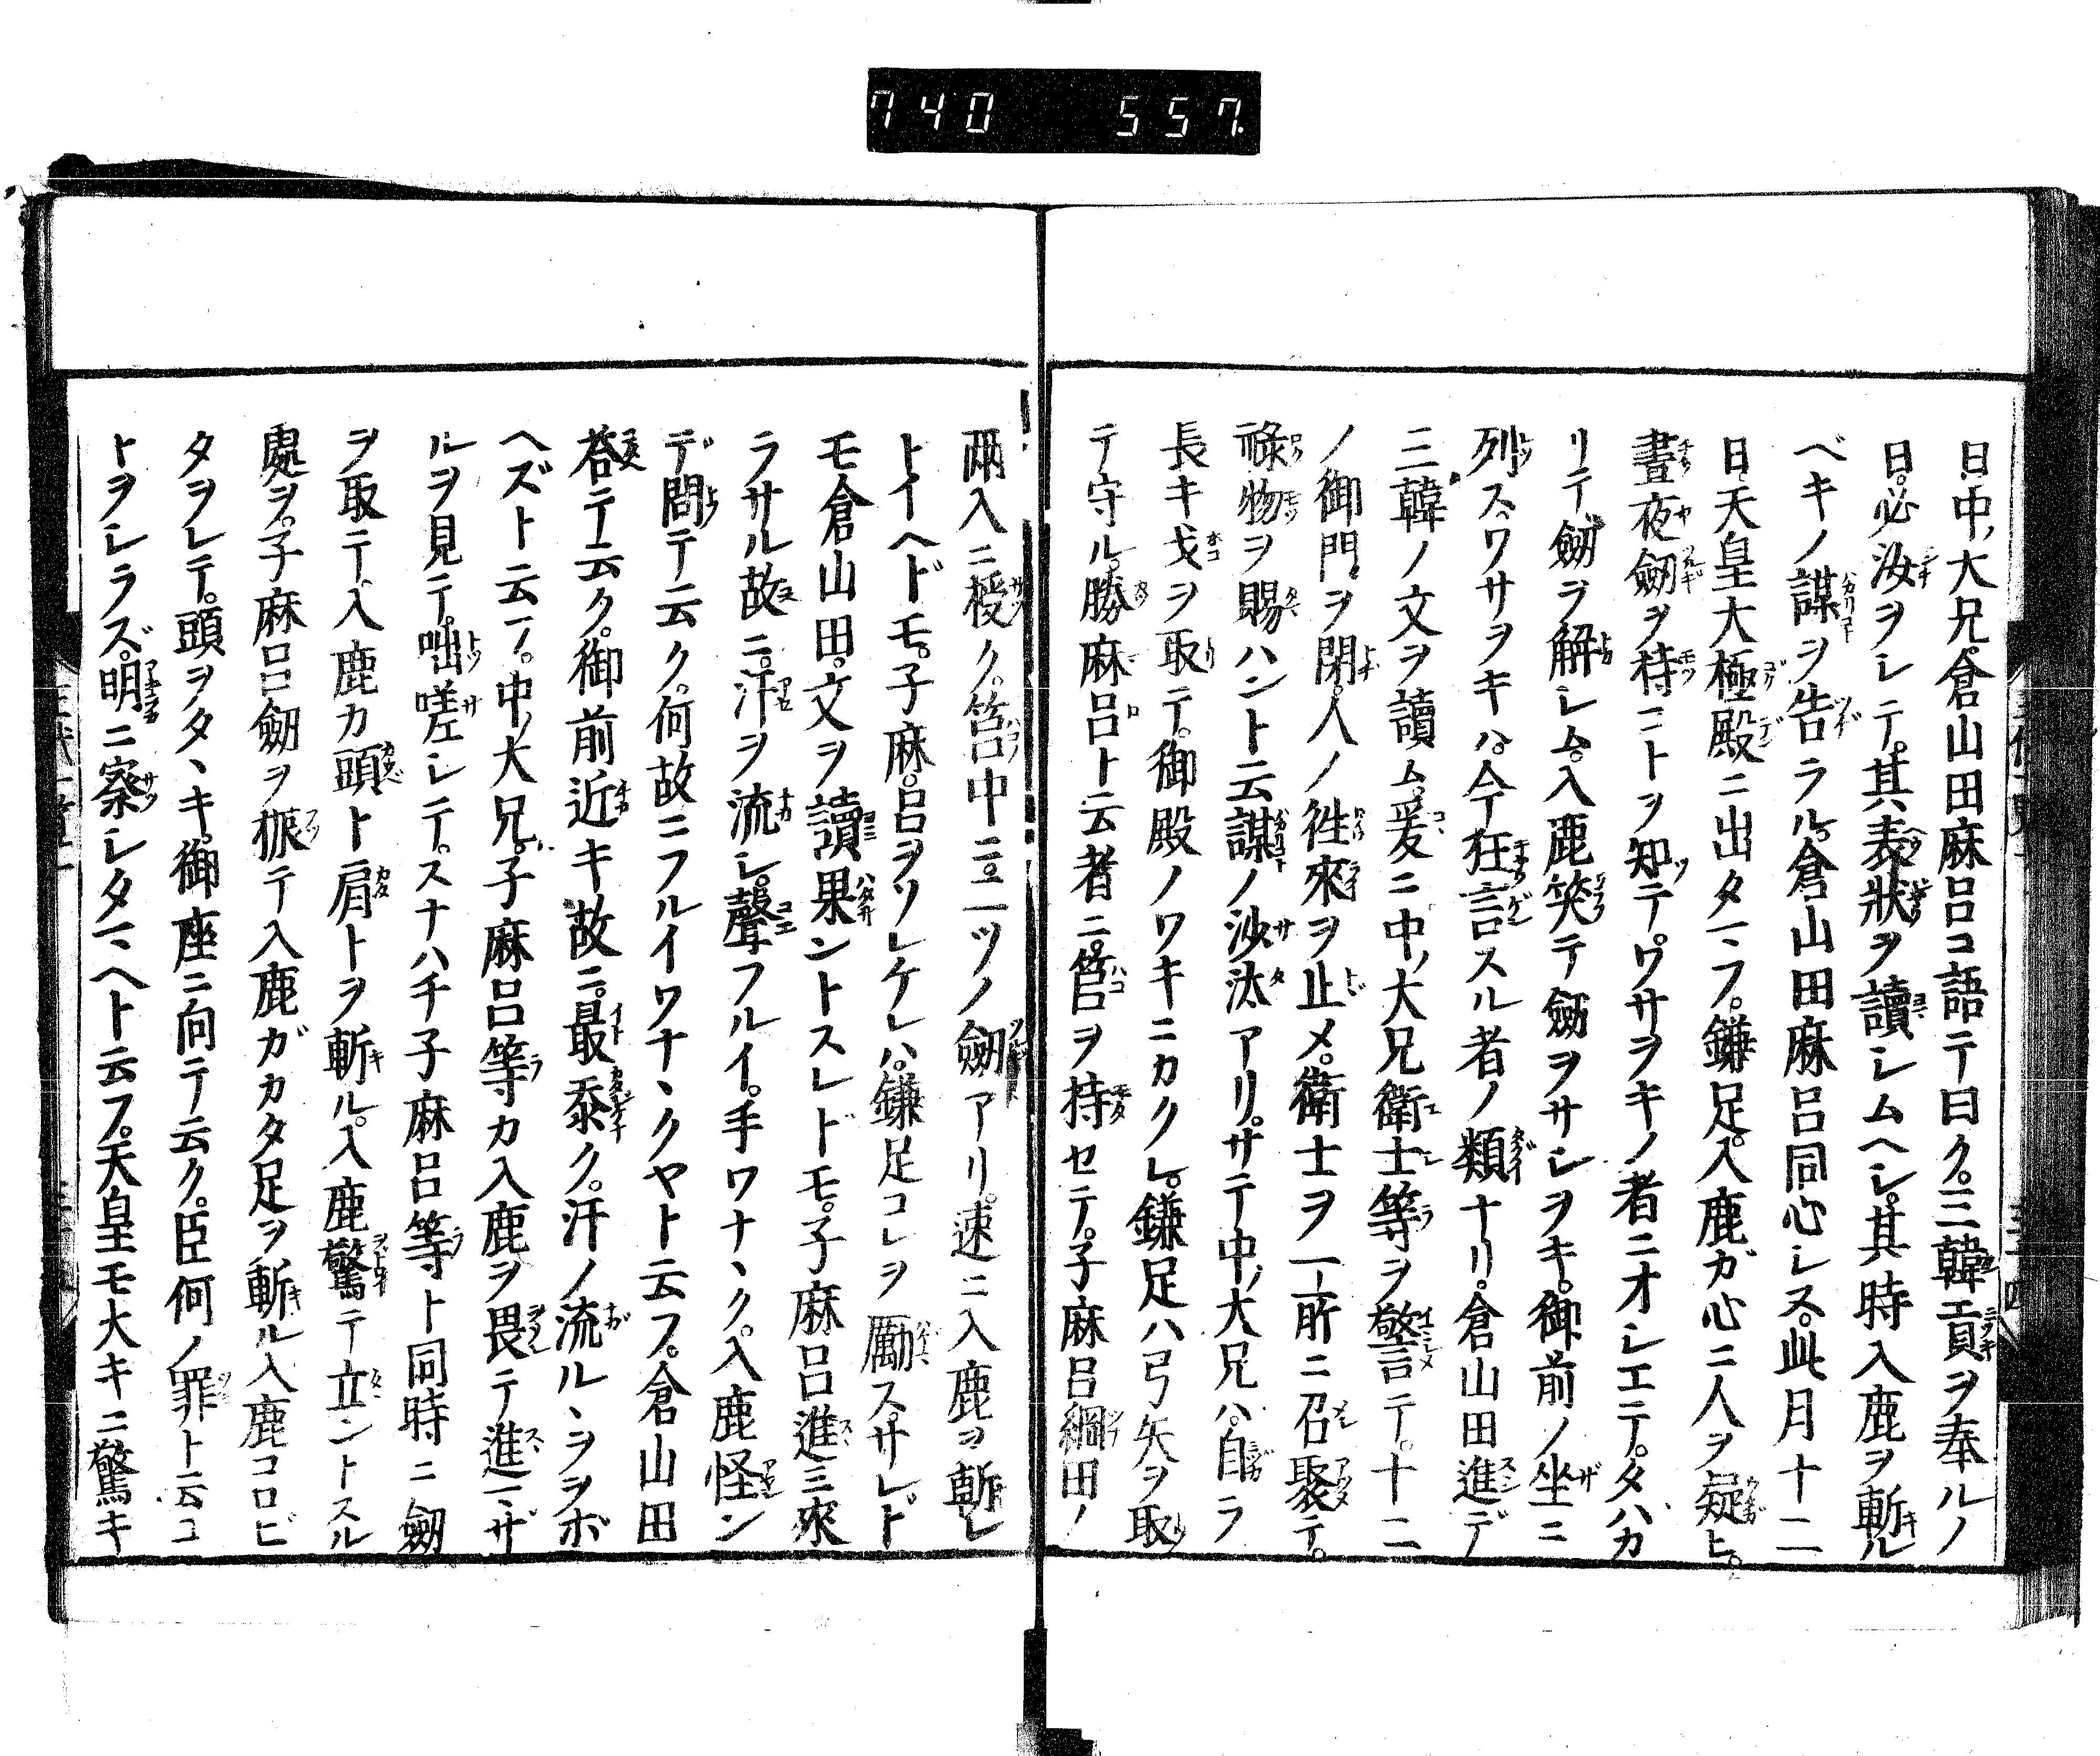 740 557.
日中ノ大兄倉山田麻呂ニ語テ曰ク。三韓ヨリ貢ヲ奉ルノ
日。必汝ヲシテ。其表狀ヲ讀シムヘシ。其時入鹿ヲ斬ル
ベキノ謀ヲ告ラル。倉山田麻呂同心シス。此月十二
日。天皇大極殿ニ出タマフ。鎌足入鹿ガ心ニ人ヲ疑ヒ。
晝夜劔ヲ持コトヲ知テ。ワサヲキノ者ニオシエテ。タハカ
リテ劔ヲ解シム。入鹿笑テ劔ヲサシヲキ。御前ノ坐ニ
列ス。ワサヲキハ。今狂言スル者ノ類ナリ。倉山田進デ
三韓ノ文ヲ讀ム。爰ニ中ノ大兄衛士等ヲ警テ。十二
ノ御門ヲ閉。人ノ徃來ヲ止メ。衛士ヲ一所ニ召聚テ。
祿物ヲ賜ハント云謀ノ沙汰アリ。サテ中ノ大兄ハ。自ラ
長キ戈ヲ取テ。御殿ノワキニカクレ。鎌足ハ弓矢ヲ取
テ守ル。勝麻呂ト云者ニ。筥ヲ持セテ。子麻呂綱田ノ
兩人ニ授ク。筥中ニ二ツノ劔アリ。速ニ入鹿ヲ斬レ
トイヘドモ。子麻呂ヲソレケレハ。鎌足コレヲ勵ス。サレド
モ倉山田。文ヲ讀果ントスレドモ。子麻呂進ミ來
ラサル故ニ。汗ヲ流シ。聲フルイ。手ワナヽク。入鹿怪ン
デ問テ云ク。何故ニフルイワナヽクヤト云フ。倉山田
荅テ云ク。御前近キ故ニ。最忝ク。汗ノ流ルヽヲヲボ
ヘズト云フ。中ノ大兄。子麻呂等カ入鹿ヲ畏テ進マザ
ルヲ見テ。咄嗟シテ。スナハチ子麻呂等ト同時ニ劔
ヲ取テ。入鹿カ頭ト肩トヲ斬ル。入鹿驚テ立ントスル
處ヲ。子麻呂劔ヲ振テ入鹿ガカタ足ヲ斬ル入鹿コロビ
タヲレテ。頭ヲタヽキ。御座ニ向テ云ク。臣何ノ罪ト云コ
トヲシラズ。明ニ察シタマヘト云フ。天皇モ大キニ驚キ